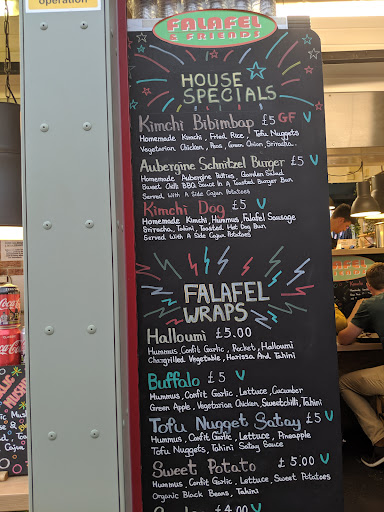 operation
FALAFEL
& FRIENDS
HOUSE
SPECIALS
Kimchi Bibimbap £5 GF V
Homemade Kimchi, Fried Rice, Tofu Nuggets
Vegetarian Chicken, Peas, Green Onion, Sriracha..
Aubergine Schnitzel Burger £5 V
Homemade Aubergine Patties, Garden Salad
Sweet Chilli BBQ Sauce In A Toasted Burger Bun
Served With A Side Cajun Potatoes
Kimchi Dog £5 V
Homemade Kimchi, Hummus, Falafel Sausage
Sriracha, Tahini, Toasted Hot Dog Bun
Served With A Side Cajun Potatoes
FALAFEL
WRAPS
Halloumi £5.00
Hummus, Confit Garlic, Rocket, Halloumi
Chargrilled Vegetable, Harissa And Tahini
Buffalo £5 V
Hummus, Confit Garlic, Lettuce, Cucumber
Green Apple, Vegetarian Chicken, Sweetchilli, Tahini
Tofu Nugget Satay £5 V
Hummus, Confit Garlic, Lettuce, Pineapple
Tofu Nuggets, Tahini Satay Sauce
Sweet Potato £5.00 V
Hummus, Confit Garlic, Lettuce, Sweet Potatoes
Organic Black Beans, Tahini
£4.00 V
Coca-Cola
FALAFEL